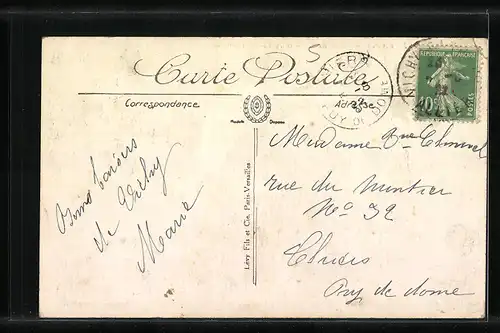 5
Carte Postale
Correspondance
Adresse
THIERS
PUY DE DOME
VICHY
REPUBLIQUE FRANÇAISE
10c
POSTES
Modèle Déposé
Bons baisers
de Vichy
Marie
Lévy Fils et Cie, Paris-Versailles
Madame Vve
rue du Moutier
No 32
Thiers
Puy de dome